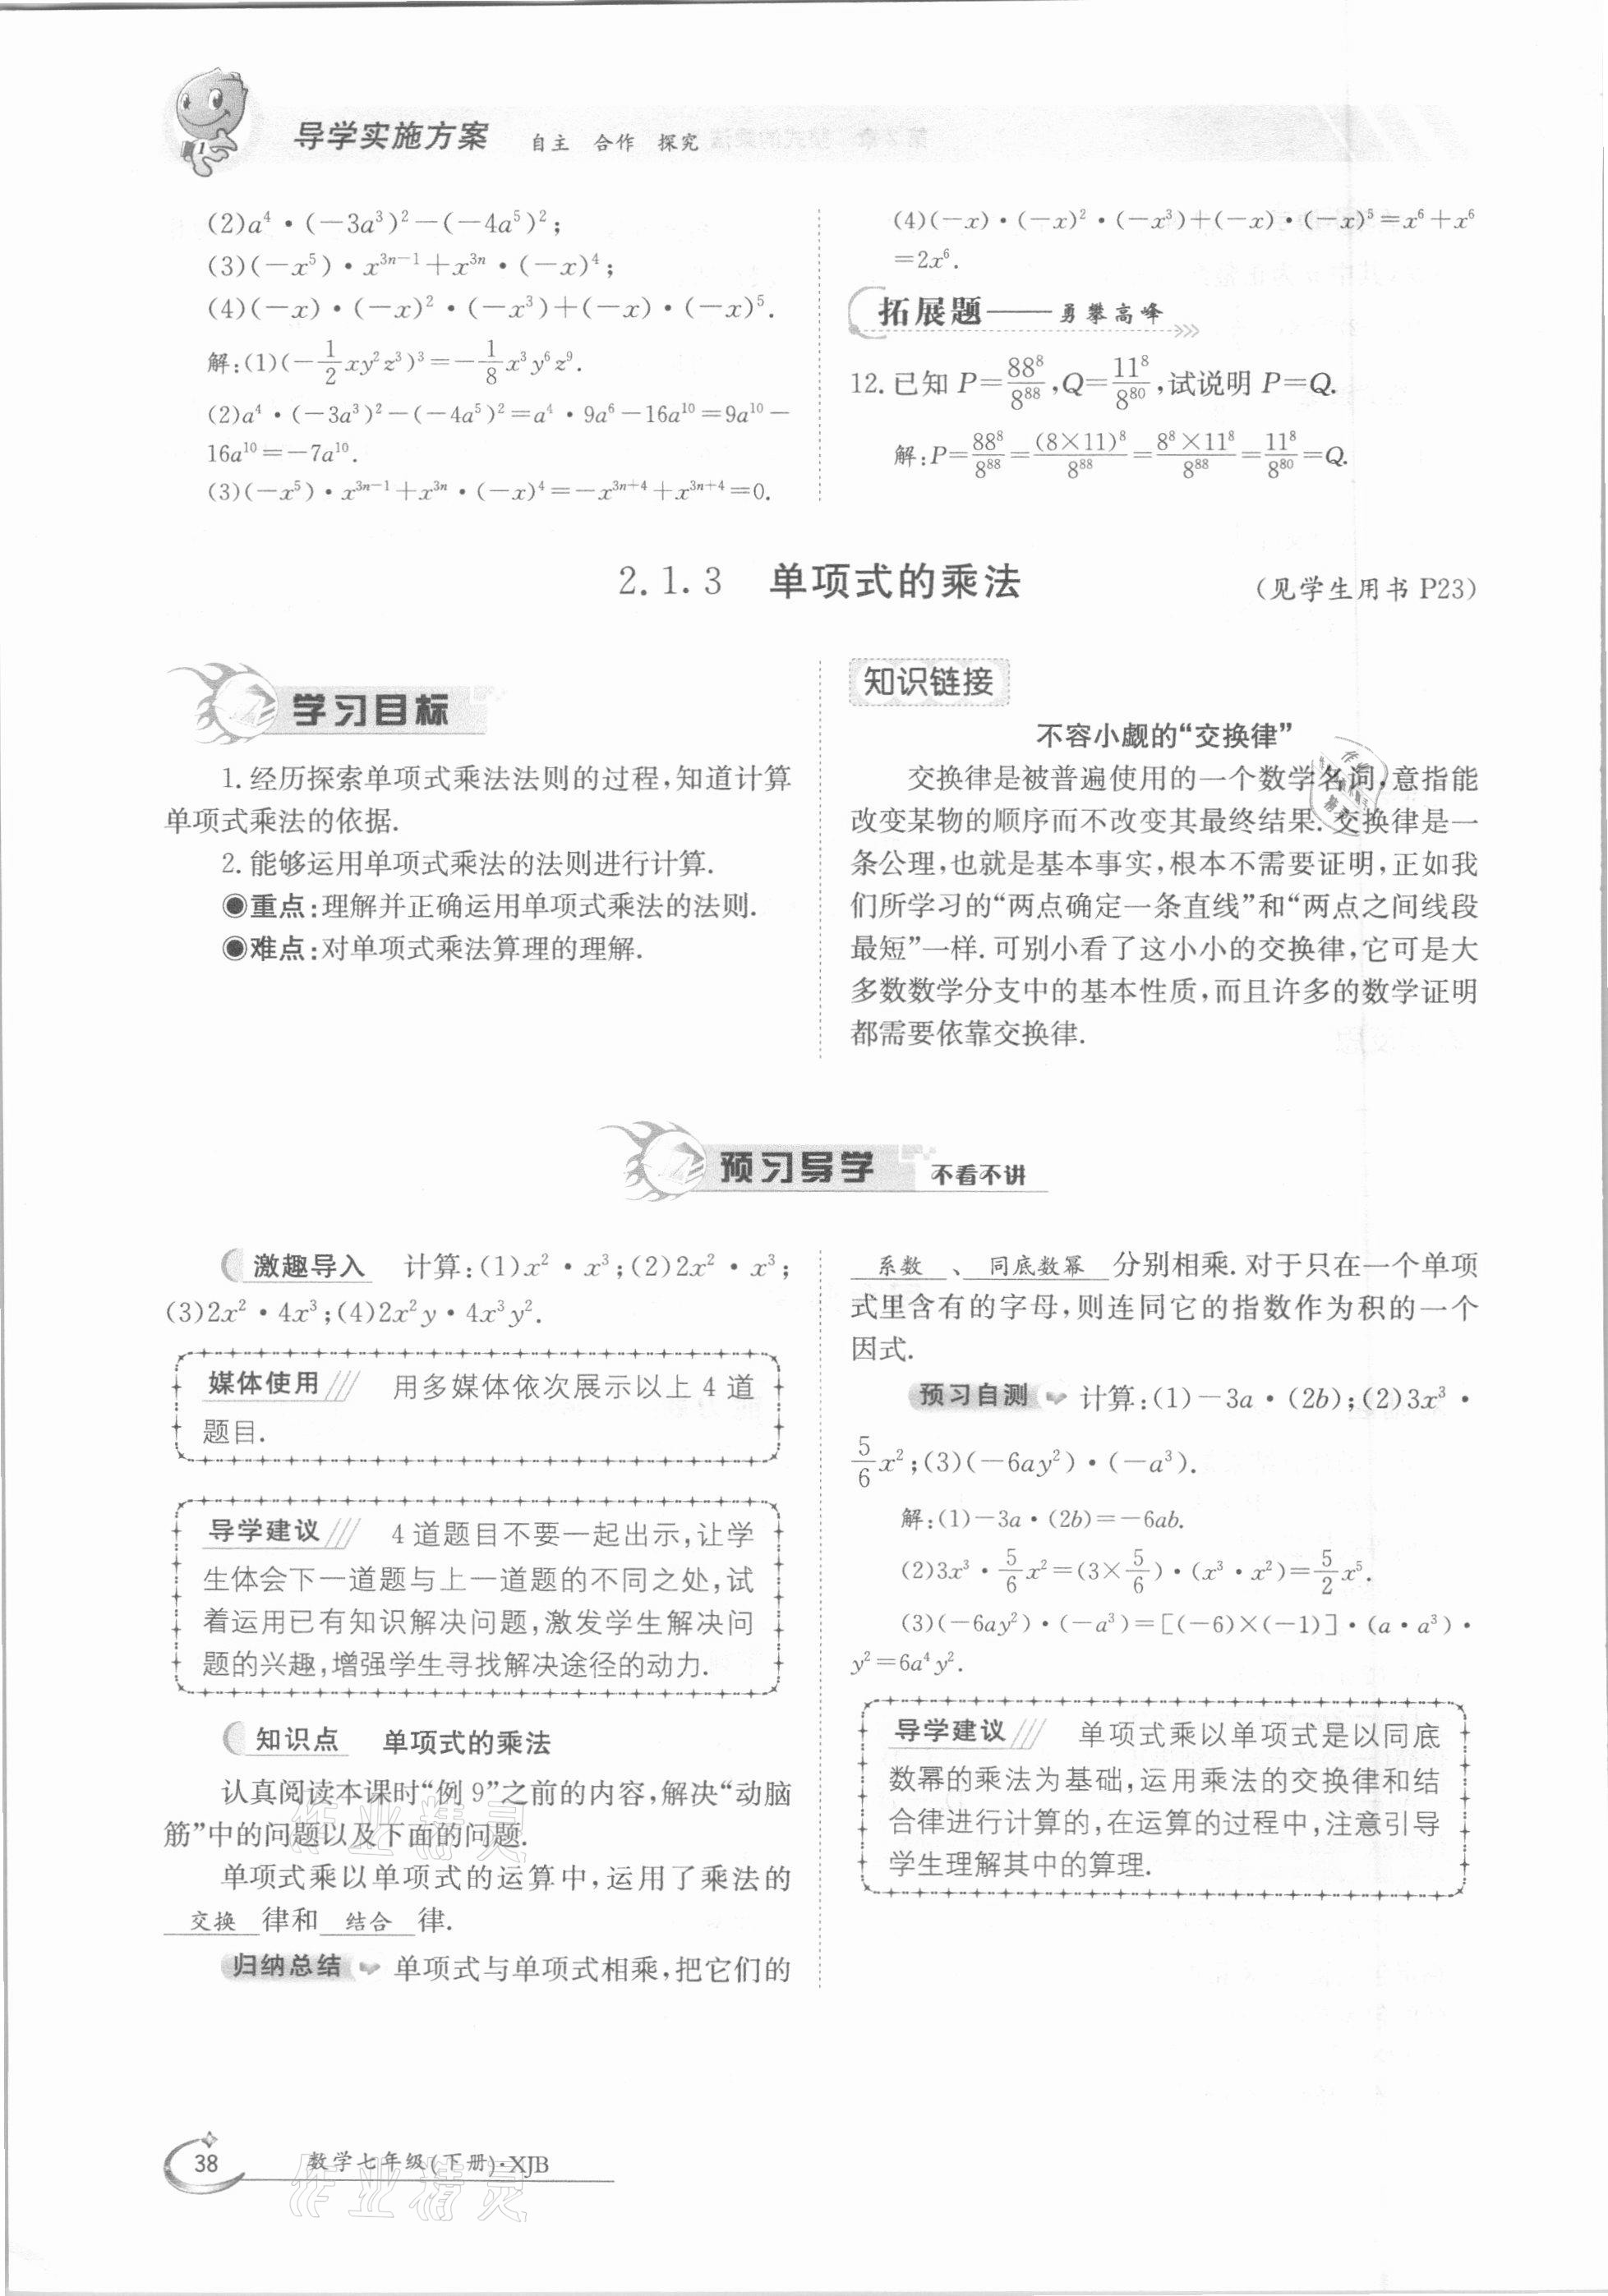 导学实施方案 自主 合作 探究
(2)a⁴·(-3a³)²-(-4a⁵)²;
(3)(-x⁵)·x³ⁿ⁻¹+x³ⁿ·(-x)⁴;
(4)(-x)·(-x)²·(-x³)+(-x)·(-x)⁵.
解:(1)(-1/2xy²z³)³=-1/8x³y⁶z⁹.
(2)a⁴·(-3a³)²-(-4a⁵)²=a⁴·9a⁶-16a¹⁰=9a¹⁰-
16a¹⁰=-7a¹⁰.
(3)(-x⁵)·x³ⁿ⁻¹+x³ⁿ·(-x)⁴=-x³ⁿ⁺⁴+x³ⁿ⁺⁴=0.
(4)(-x)·(-x)²·(-x³)+(-x)·(-x)⁵=x⁶+x⁶
=2x⁶.
拓展题——勇攀高峰
12.已知 P=88⁸/8⁸⁸,Q=11⁸/8⁸⁰,试说明 P=Q.
解:P=88⁸/8⁸⁸=(8×11)⁸/8⁸⁸=8⁸×11⁸/8⁸⁸=11⁸/8⁸⁰=Q.
2.1.3 单项式的乘法 (见学生用书 P23)
学习目标
1.经历探索单项式乘法法则的过程,知道计算
单项式乘法的依据.
2.能够运用单项式乘法的法则进行计算.
◉重点:理解并正确运用单项式乘法的法则.
◉难点:对单项式乘法算理的理解.
知识链接
不容小觑的“交换律”
交换律是被普遍使用的一个数学名词,意指能
改变某物的顺序而不改变其最终结果.交换律是一
条公理,也就是基本事实,根本不需要证明,正如我
们所学习的“两点确定一条直线”和“两点之间线段
最短”一样.可别小看了这小小的交换律,它可是大
多数数学分支中的基本性质,而且许多的数学证明
都需要依靠交换律.
预习导学 不看不讲
激趣导入 计算:(1)x²·x³;(2)2x²·x³;
(3)2x²·4x³;(4)2x²y·4x³y².
媒体使用 用多媒体依次展示以上 4 道
题目.
导学建议 4 道题目不要一起出示,让学
生体会下一道题与上一道题的不同之处,试
着运用已有知识解决问题,激发学生解决问
题的兴趣,增强学生寻找解决途径的动力.
知识点 单项式的乘法
认真阅读本课时“例 9”之前的内容,解决“动脑
筋”中的问题以及下面的问题.
单项式乘以单项式的运算中,运用了乘法的
交换 律和 结合 律.
归纳总结 单项式与单项式相乘,把它们的
系数 、 同底数幂 分别相乘.对于只在一个单项
式里含有的字母,则连同它的指数作为积的一个
因式.
预习自测 计算:(1)-3a·(2b);(2)3x³·
5/6x²;(3)(-6ay²)·(-a³).
解:(1)-3a·(2b)=-6ab.
(2)3x³·5/6x²=(3×5/6)·(x³·x²)=5/2x⁵.
(3)(-6ay²)·(-a³)=[(-6)×(-1)]·(a·a³)·
y²=6a⁴y².
导学建议 单项式乘以单项式是以同底
数幂的乘法为基础,运用乘法的交换律和结
合律进行计算的,在运算的过程中,注意引导
学生理解其中的算理.
作业精灵
38 数学七年级(下册)·XJB
作业精灵